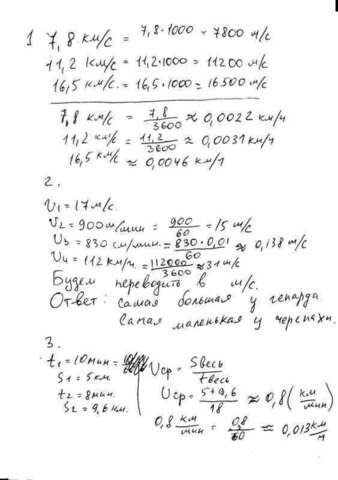 1 7,8 км/с = 7,8·1000 = 7800 м/с
11,2 км/с = 11,2·1000 = 11200 м/с
16,5 км/с. = 16,5·1000 = 16500 м/с
7,8 км/с = 7,8/3600 ≈ 0,0022 км/ч
11,2 км/с = 11,2/3600 ≈ 0,0031 км/ч
16,5 км/с ≈ 0,0046 км/ч
2.
V1 = 17 м/с.
V2 = 900 м/мин = 900/60 = 15 м/с
V3 = 830 см/мин. = 830·0,01/60 ≈ 0,138 м/с
V4 = 112 км/ч. = 112000/3600 ≈ 31 м/с
Будем переводить в м/с.
Ответ: самая большая у гепарда
Самая маленькая у черепахи.
3.
t1 = 10 мин =
S1 = 5 км.
t2 = 8 мин.
S2 = 9,6 км.
Vср = Sвесь/tвесь
Vср = 5+9,6/18 ≈ 0,8 (км/мин)
0,8 км/мин = 0,8/60 ≈ 0,013 км/ч